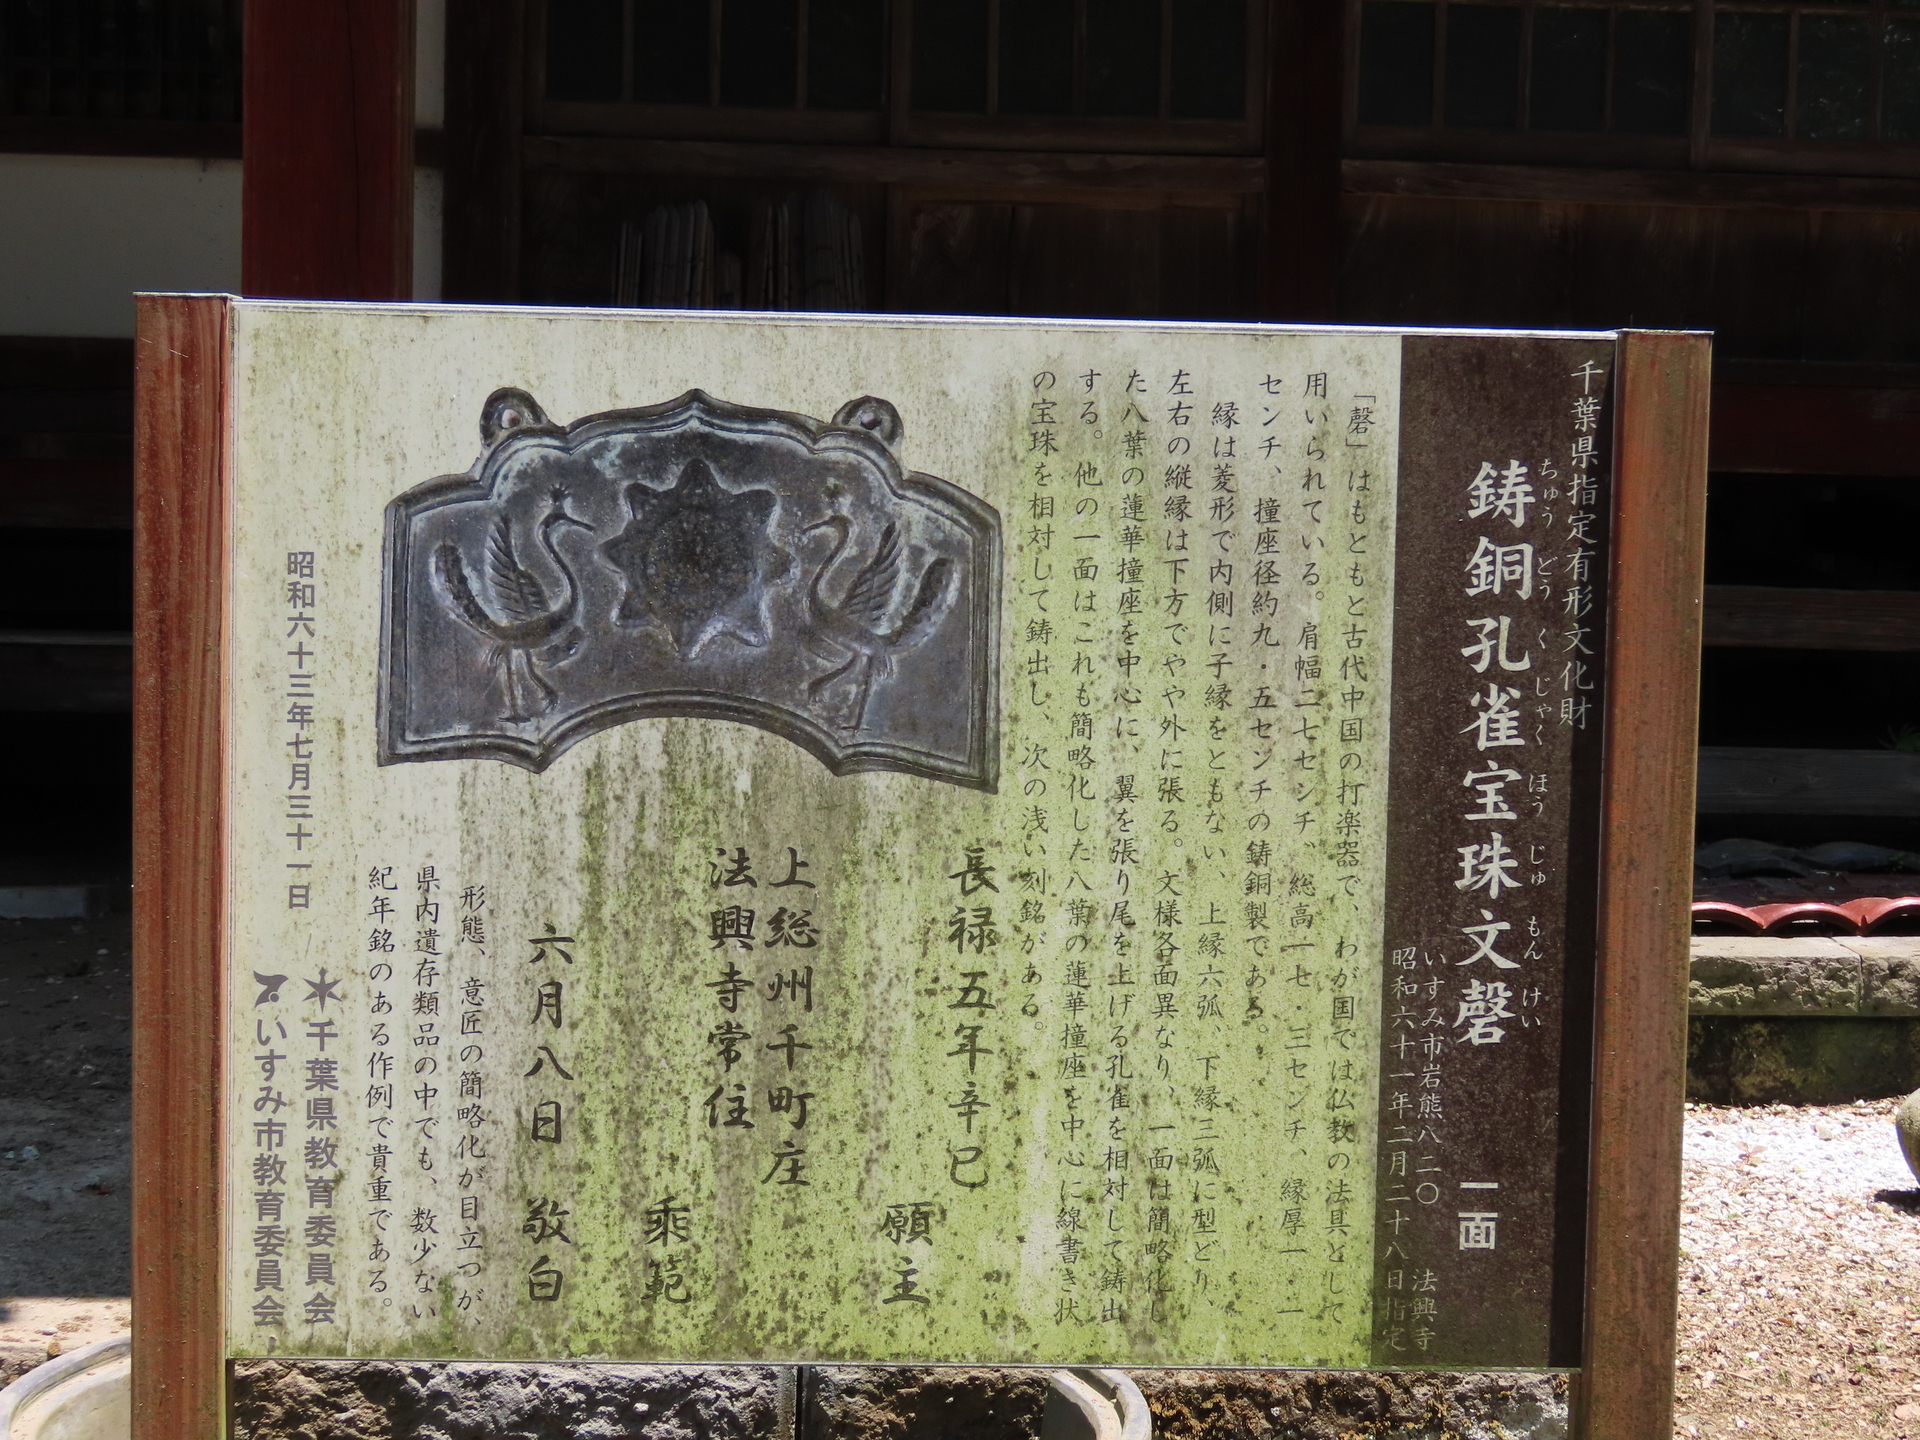 千葉県指定有形文化財
ちゅう どう く じゃく ほう じゅ もん けい
鋳銅孔雀宝珠文磬 一面
いすみ市岩熊八二〇 法興寺
昭和六十一年二月二十八日指定
「磬」はもともと古代中国の打楽器で、わが国では仏教の法具として
用いられている。肩幅二七センチ、総高一七・三センチ、縁厚一・一
センチ、撞座径約九・五センチの鋳銅製である。
縁は菱形で内側に子縁をともない、上縁六弧、下縁三弧に型どり、
左右の縦縁は下方でやや外に張る。文様各面異なり、一面は簡略化し
た八葉の蓮華撞座を中心に、翼を張り尾を上げる孔雀を相対して鋳出
する。他の一面はこれも簡略化した八葉の蓮華撞座を中心に線書き状
の宝珠を相対して鋳出し、次の浅い刻銘がある。
長禄五年辛巳
願主
上総州千町庄
法興寺常住
乘範
六月八日 敬白
形態、意匠の簡略化が目立つが、
県内遺存類品の中でも、数少ない
紀年銘のある作例で貴重である。
昭和六十三年七月三十一日
千葉県教育委員会
いすみ市教育委員会